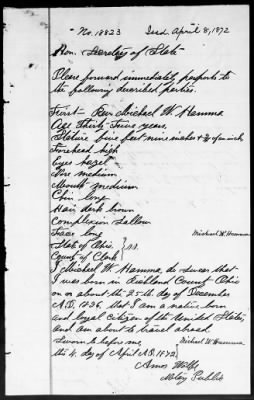 No. 18823 Issd. April 8, 1872
Hon. Secretary of State
Please forward immediately passports to
the following described parties.
First - Rev Michael W. Hamma
Age Thirty-Five years.
Stature five feet nine inches & 3/4 of an inch
Forehead high
Eyes hazel
Nose medium
Mouth medium
Chin long
Hair dark brown
Complexion Sallow
Face long
Michael W. Hamma
State of Ohio }
County of Clark } ss.
I Michael W. Hamma, do swear that
I was born in Richland County Ohio
on or about the 25th day of December
A.D. 1836. that I am a native born
and loyal citizen of the United States,
and am about to travel abroad
Sworn to before me Michael W. Hamma
this 4. day of April A.D. 1872
Amos
Notary Public